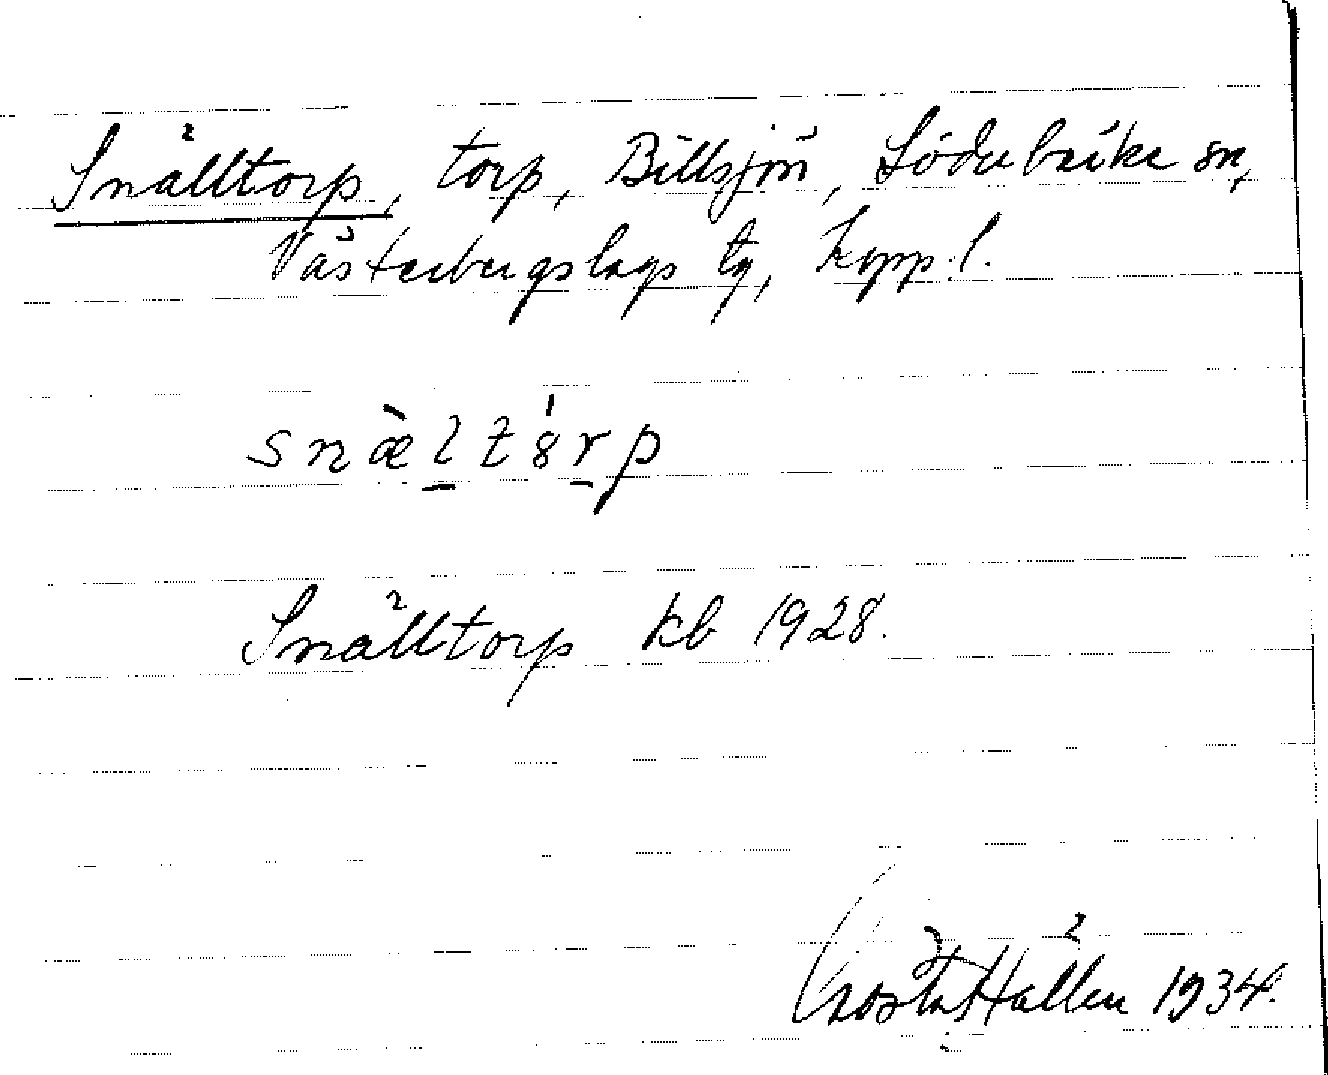 Snålltorp, torp, Billsjön, Söderbärke sn,
Västerbergslags tg, Kopp. l.
snæ̀ltȣ́rp
Snålltorp kb 1928.
Gösta Hållén 1934.